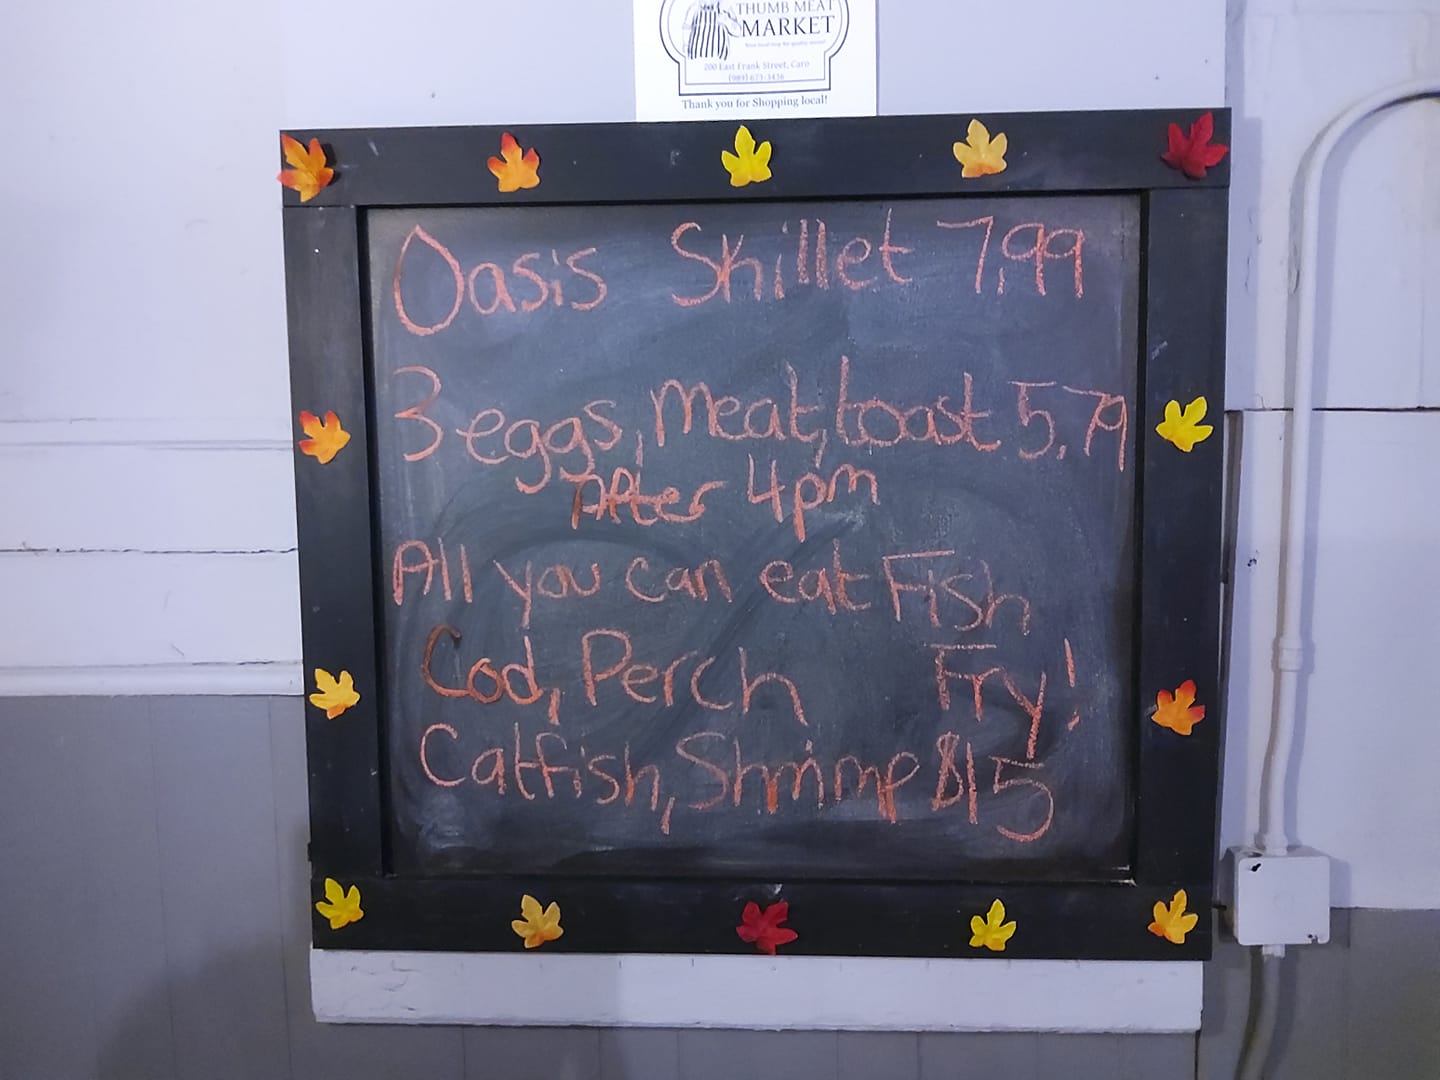 THUMB MEAT
MARKET
200 East Frank Street, Caro
(989) 673-3436
Thank you for Shopping local!
Oasis Skillet 7.99
3 eggs, meat, toast 5.79
After 4pm
All you can eat Fish
Cod, Perch Fry!
Catfish, Shrimp $15